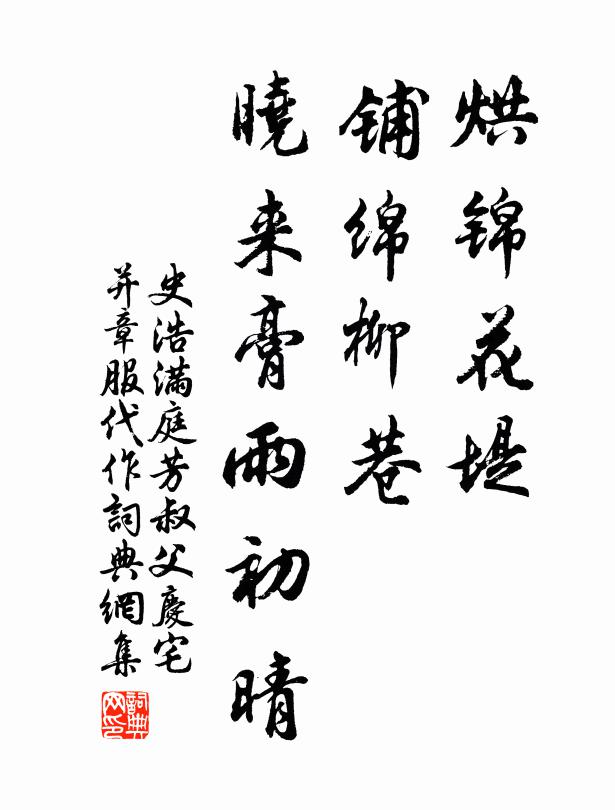 烘锦花堤
铺绵柳巷
曉来膏雨初晴
史浩满庭芳叔父慶宅
并章服代作詞典網集
詞典网印